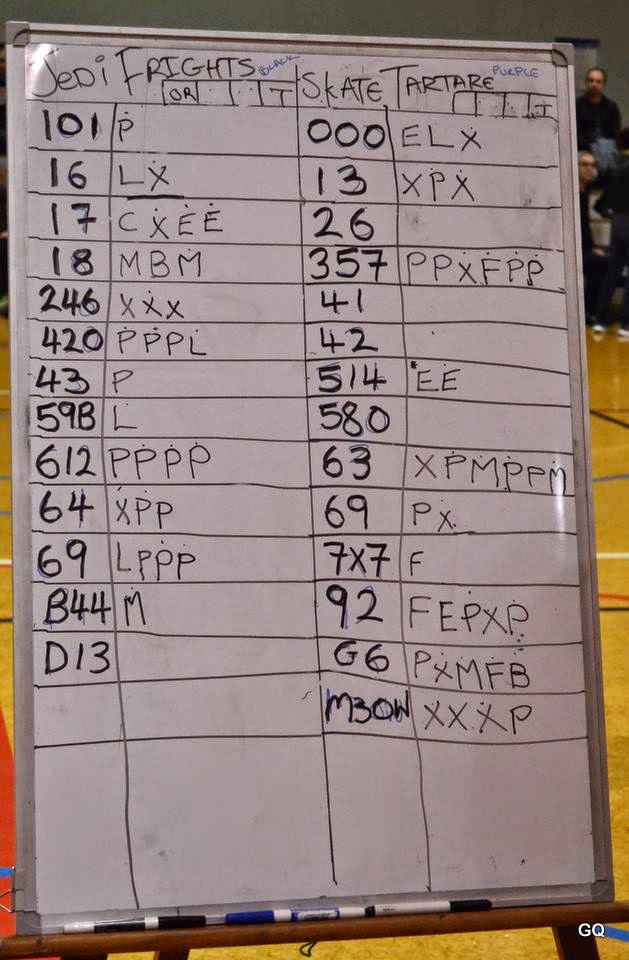 JEDI FRIGHTS BLACK SKATE TARTARE PURPLE
OR T T
101 P 000 ELX
16 LX 13 XPX
17 CXEE 26
18 MBM 357 PPXFPP
246 XXX 41
420 PPPL 42
43 P 514 EE
59B L 580
612 PPPP 63 XPMPPM
64 XPP 69 PX
69 LPPP 7X7 F
B44 M 92 FEPXP
D13 G6 PXMFB
M30W XXXP
GQ